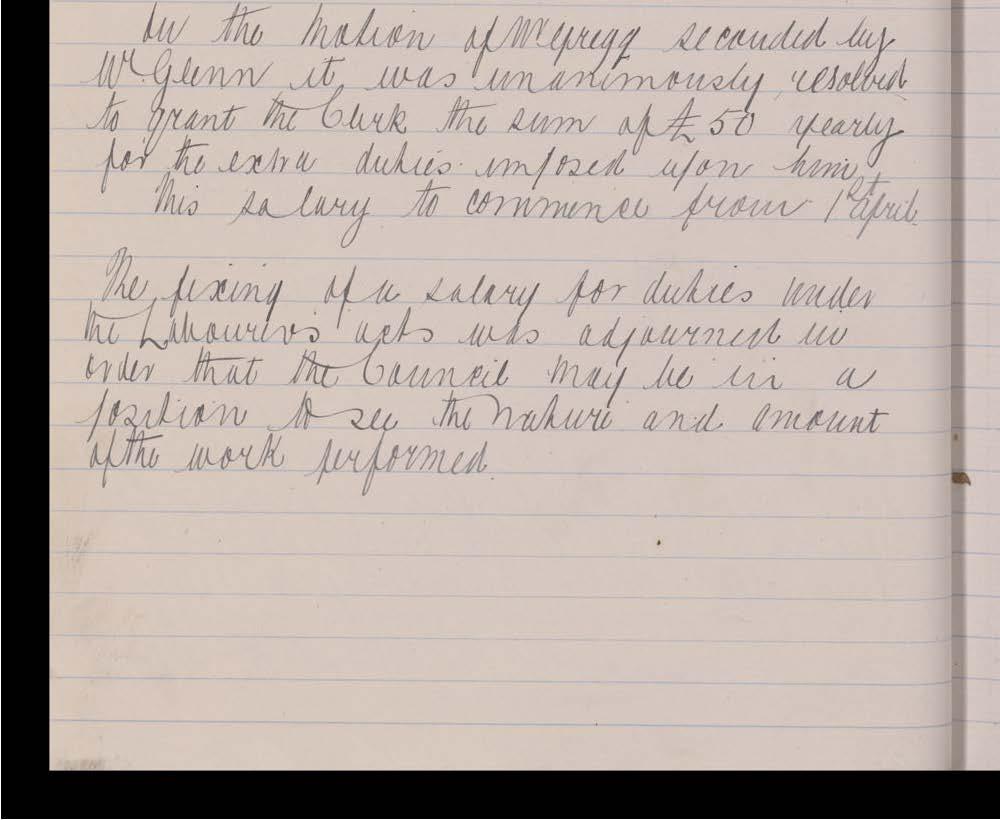 On the Motion of Mr Gregg seconded by
Mr Glenn it was unanimously resolved
to grant the Clerk the sum of £50 yearly
for the extra duties imposed upon him,
This salary to commence from 1st April.
The fixing of a salary for duties under
the Labourers acts was adjourned in
order that the Council may be in a
position to see the nature and amount
of the work performed.